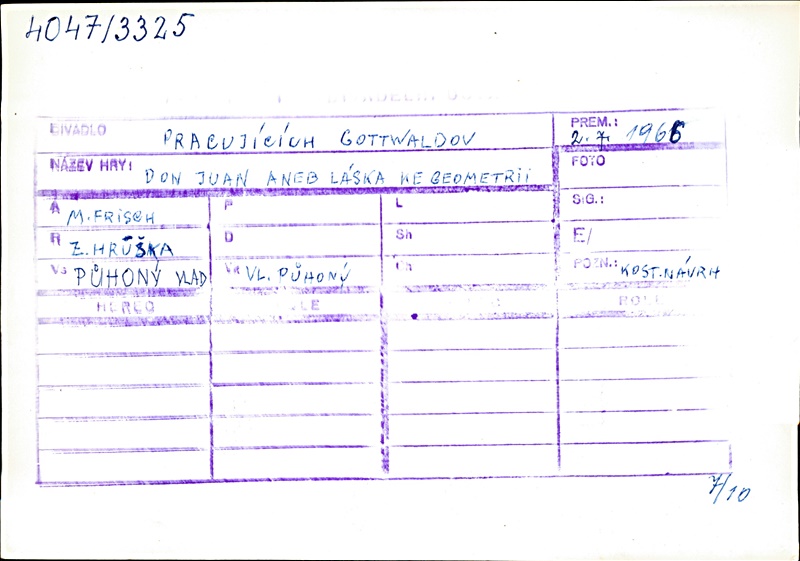 4047/3325
DIVADLO PRACUJÍCÍCH GOTTWALDOV PREM.: 2.7. 1966
NÁZEV HRY: DON JUAN ANEB LÁSKA KE GEOMETRII FOTO
A M.FRISCH P L SIG.:
R Z.HRŮŠKA D Sh E/
Vs PŮHONÝ VLAD VL. PŮHONÝ Ch POZN.: KOST.NÁVRH
HEREC ROLE
7/10